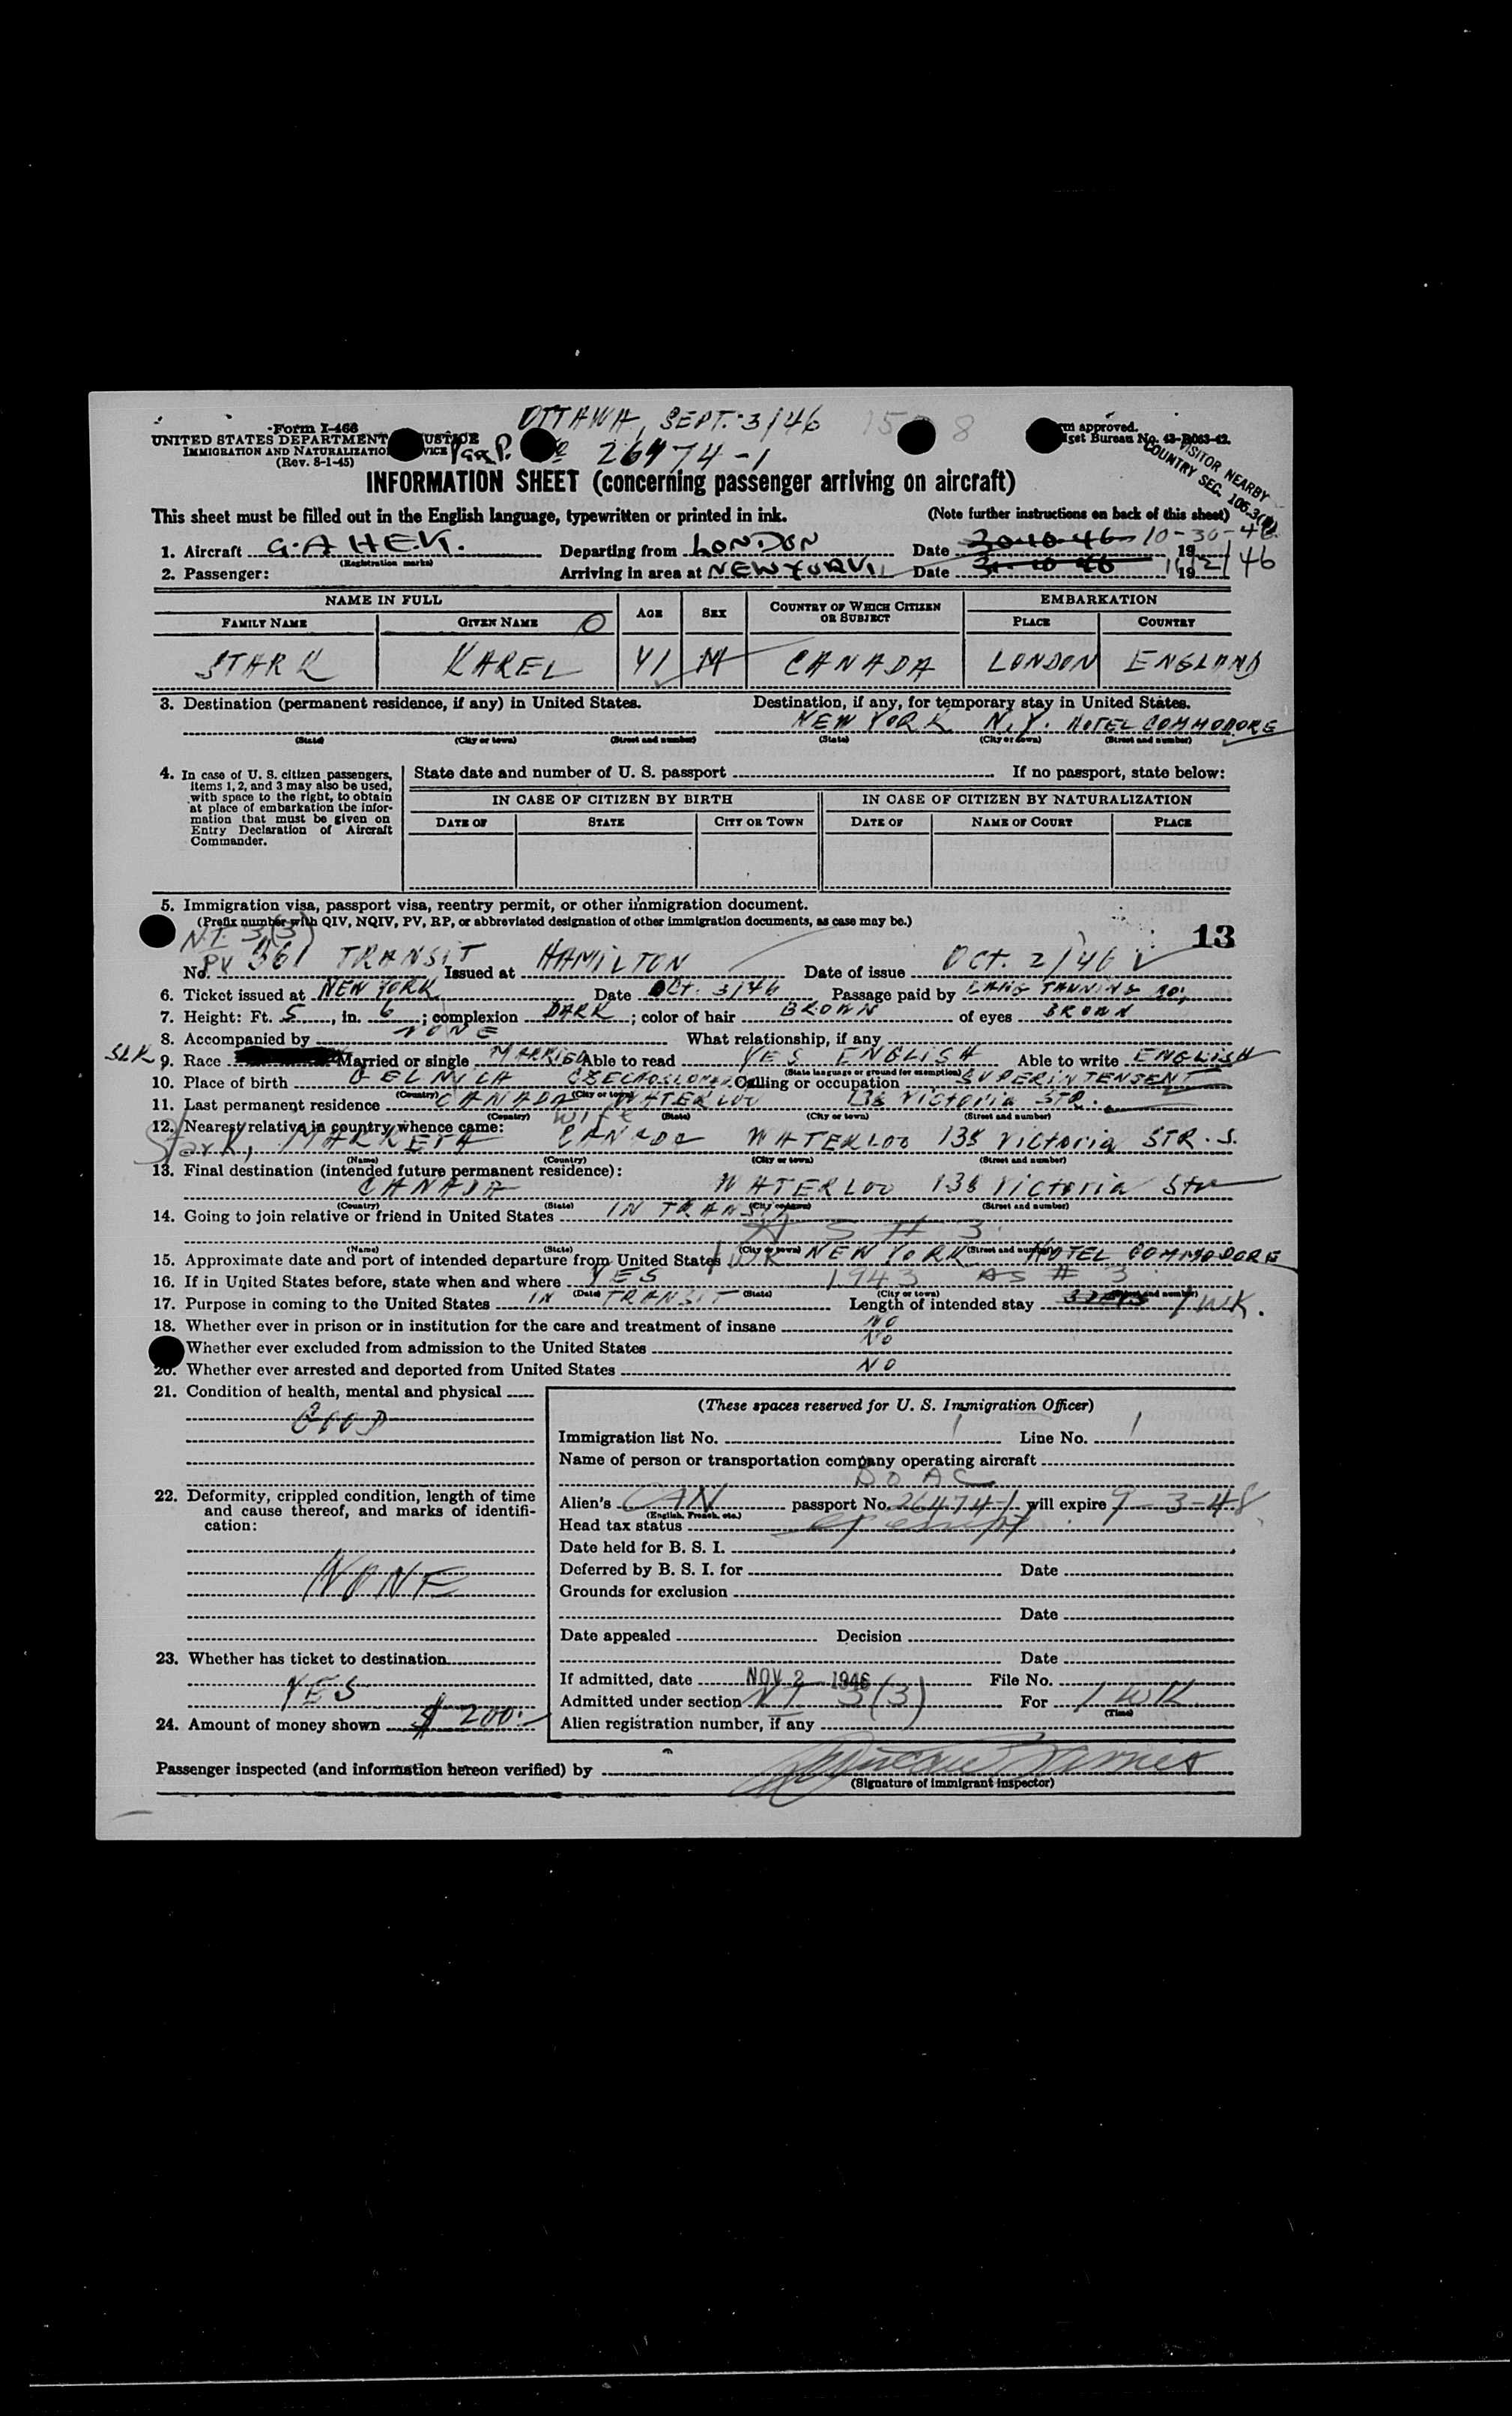 OTTAWA, SEPT. 3/46
Form I-466
UNITED STATES DEPARTMENT JUSTICE
IMMIGRATION AND NATURALIZATION SERVICE
(Rev. 8-1-45)
Pas P. No 26474-1
Form approved.
Budget Bureau No. 43-R063-42.
VISITOR NEARBY
COUNTRY SEC. 106.3
INFORMATION SHEET (concerning passenger arriving on aircraft)
This sheet must be filled out in the English language, typewritten or printed in ink. (Note further instructions on back of this sheet)
1. Aircraft G.A HEK. Departing from LONDON Date 30-10-46 10-30-46 19
(Registration marks)
2. Passenger: Arriving in area at NEW YORK Date 31-10-46 11/2/46 19
NAME IN FULL AGE SEX COUNTRY OF WHICH CITIZEN OR SUBJECT EMBARKATION
FAMILY NAME GIVEN NAME PLACE COUNTRY
STARK KAREL 41 M CANADA LONDON ENGLAND
3. Destination (permanent residence, if any) in United States. Destination, if any, for temporary stay in United States.
NEW YORK N.Y. HOTEL COMMODORE
(State) (City or town) (Street and number) (State) (City or town) (Street and number)
4. In case of U. S. citizen passengers, items 1, 2, and 3 may also be used, with space to the right, to obtain at place of embarkation the information that must be given on Entry Declaration of Aircraft Commander.
State date and number of U. S. passport If no passport, state below:
IN CASE OF CITIZEN BY BIRTH IN CASE OF CITIZEN BY NATURALIZATION
DATE OF STATE CITY OR TOWN DATE OF NAME OF COURT PLACE
5. Immigration visa, passport visa, reentry permit, or other immigration document.
(Prefix number with QIV, NQIV, PV, RP, or abbreviated designation of other immigration documents, as case may be.)
13
N.I. 3(3)
No. PV 361 TRANSIT Issued at HAMILTON Date of issue OCT. 2/46
6. Ticket issued at NEW YORK Date OCT. 3/46 Passage paid by LANG TANNING CO.
7. Height: Ft. 5, in. 6; complexion DARK; color of hair BROWN of eyes BROWN
8. Accompanied by NONE What relationship, if any
SLK 9. Race Married or single MARRIED Able to read YES ENGLISH Able to write ENGLISH
(State language or ground for exemption)
10. Place of birth CZECHOSLOVAK Calling or occupation SUPERINTENDENT
(Country) (City or town)
11. Last permanent residence CANADA WATERLOO 138 Victoria STR.
(Country) (State) (City or town) (Street and number)
12. Nearest relative in country whence came: Wife
Stark, MARKETA CANADA WATERLOO 138 Victoria STR. S.
(Name) (Country) (City or town) (Street and number)
13. Final destination (intended future permanent residence):
CANADA WATERLOO 138 Victoria Str
(Country) (State) (City or town) (Street and number)
14. Going to join relative or friend in United States IN TRANSIT
AS # 3
(Name) (State) (City or town) (Street and number)
15. Approximate date and port of intended departure from United States 1 WK NEW YORK HOTEL COMMODORE
16. If in United States before, state when and where YES 1943 AS # 3
(Date) (State) (City or town) (Street and number)
17. Purpose in coming to the United States IN TRANSIT Length of intended stay 1 WK.
18. Whether ever in prison or in institution for the care and treatment of insane NO
Whether ever excluded from admission to the United States NO
20. Whether ever arrested and deported from United States NO
21. Condition of health, mental and physical
GOOD
22. Deformity, crippled condition, length of time and cause thereof, and marks of identification:
NONE
23. Whether has ticket to destination
YES
24. Amount of money shown $ 200.
(These spaces reserved for U. S. Immigration Officer)
Immigration list No. 1 Line No. 1
Name of person or transportation company operating aircraft
BOAC
Alien's CAN passport No. 26474-1 will expire 9-3-48
(English, French, etc.)
Head tax status exempt
Date held for B. S. I.
Deferred by B. S. I. for Date
Grounds for exclusion
Date
Date appealed Decision
Date
If admitted, date NOV 2 1946 File No.
Admitted under section NI 3(3) For 1 WK
(Time)
Alien registration number, if any
Passenger inspected (and information hereon verified) by
(Signature of immigrant inspector)